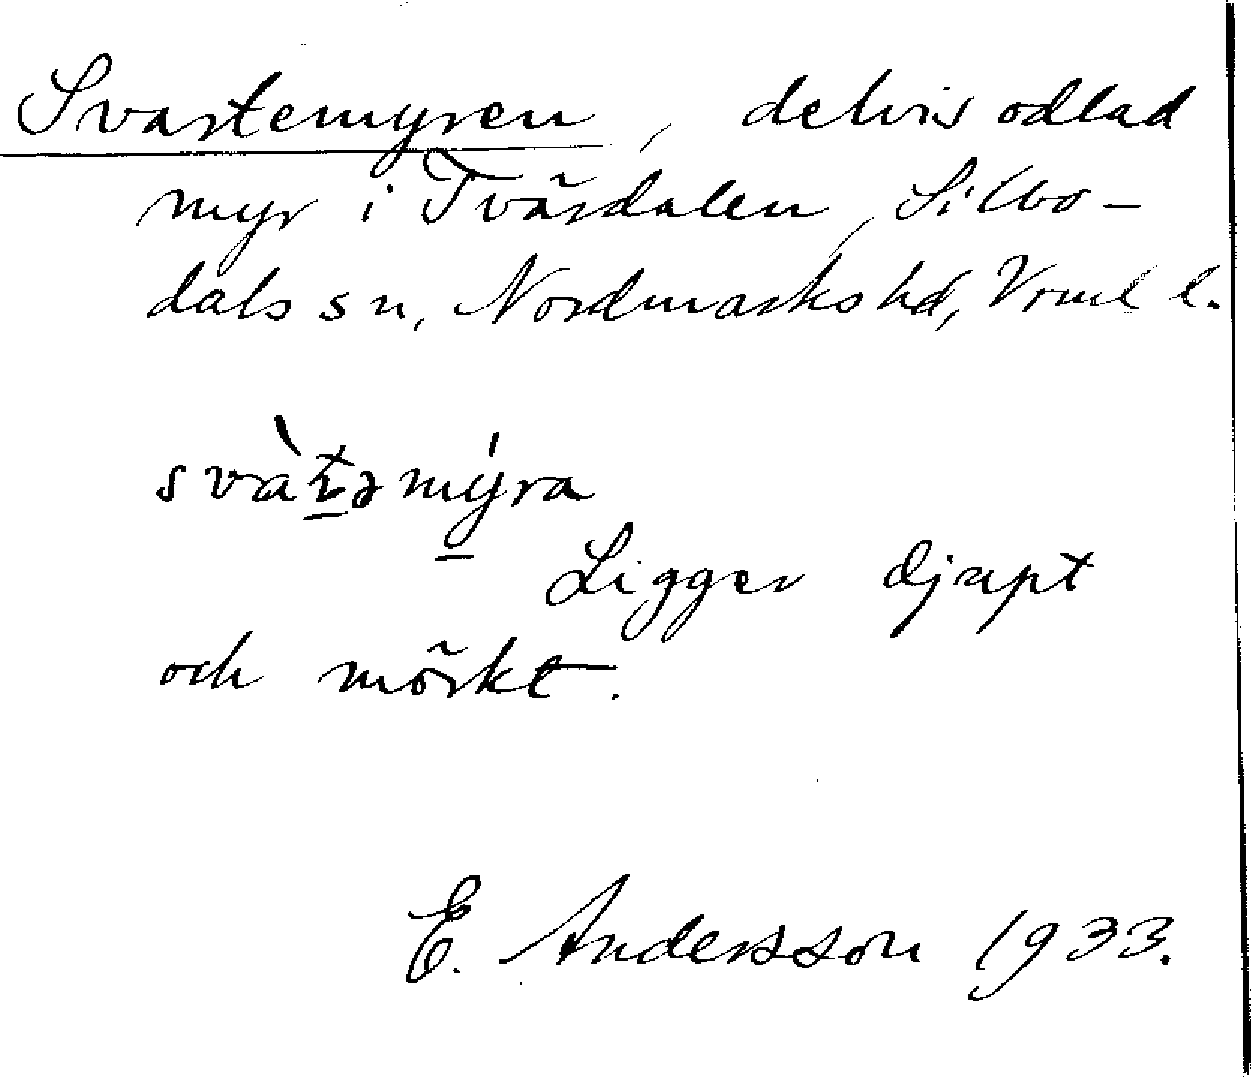 Svartemyren, delvis odlad
myr i Tvärdalen, Silbo-
dals sn, Nordmarks hd, Vrml l.
svàtəmy̍ra
Ligger djupt
och mörkt.
E. Andersson 1933.